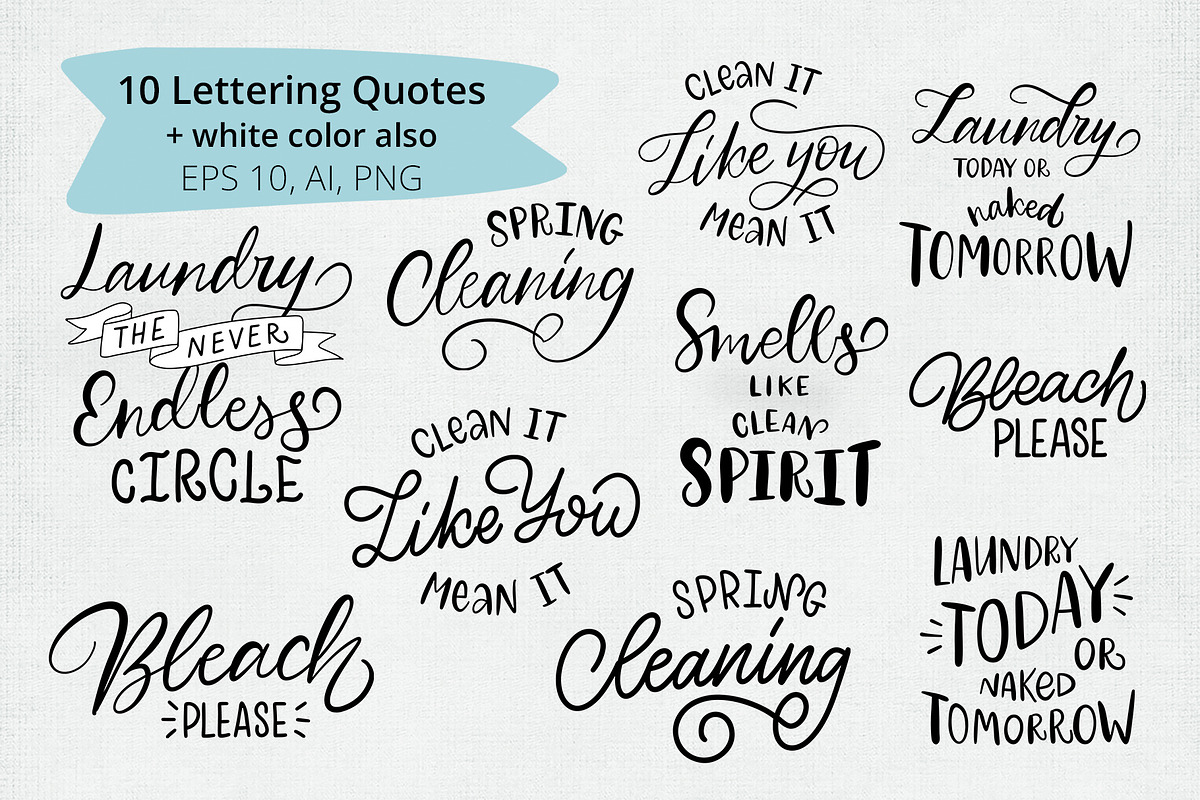 10 Lettering Quotes
+ white color also
EPS 10, AI, PNG
CLEAN IT
Like you
MEAN IT
Laundry
TODAY OR
naked
TOMORROW
Laundry
THE NEVER
Endless
CIRCLE
SPRING
Cleaning
Smells
LIKE
CLEAN
SPIRIT
Bleach
PLEASE
CLEAN IT
Like You
MEAN IT
Bleach
PLEASE
SPRING
Cleaning
LAUNDRY
TODAY
OR
NAKED
TOMORROW